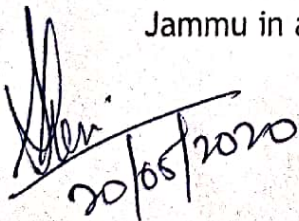 Jammu in a
20/05/2020